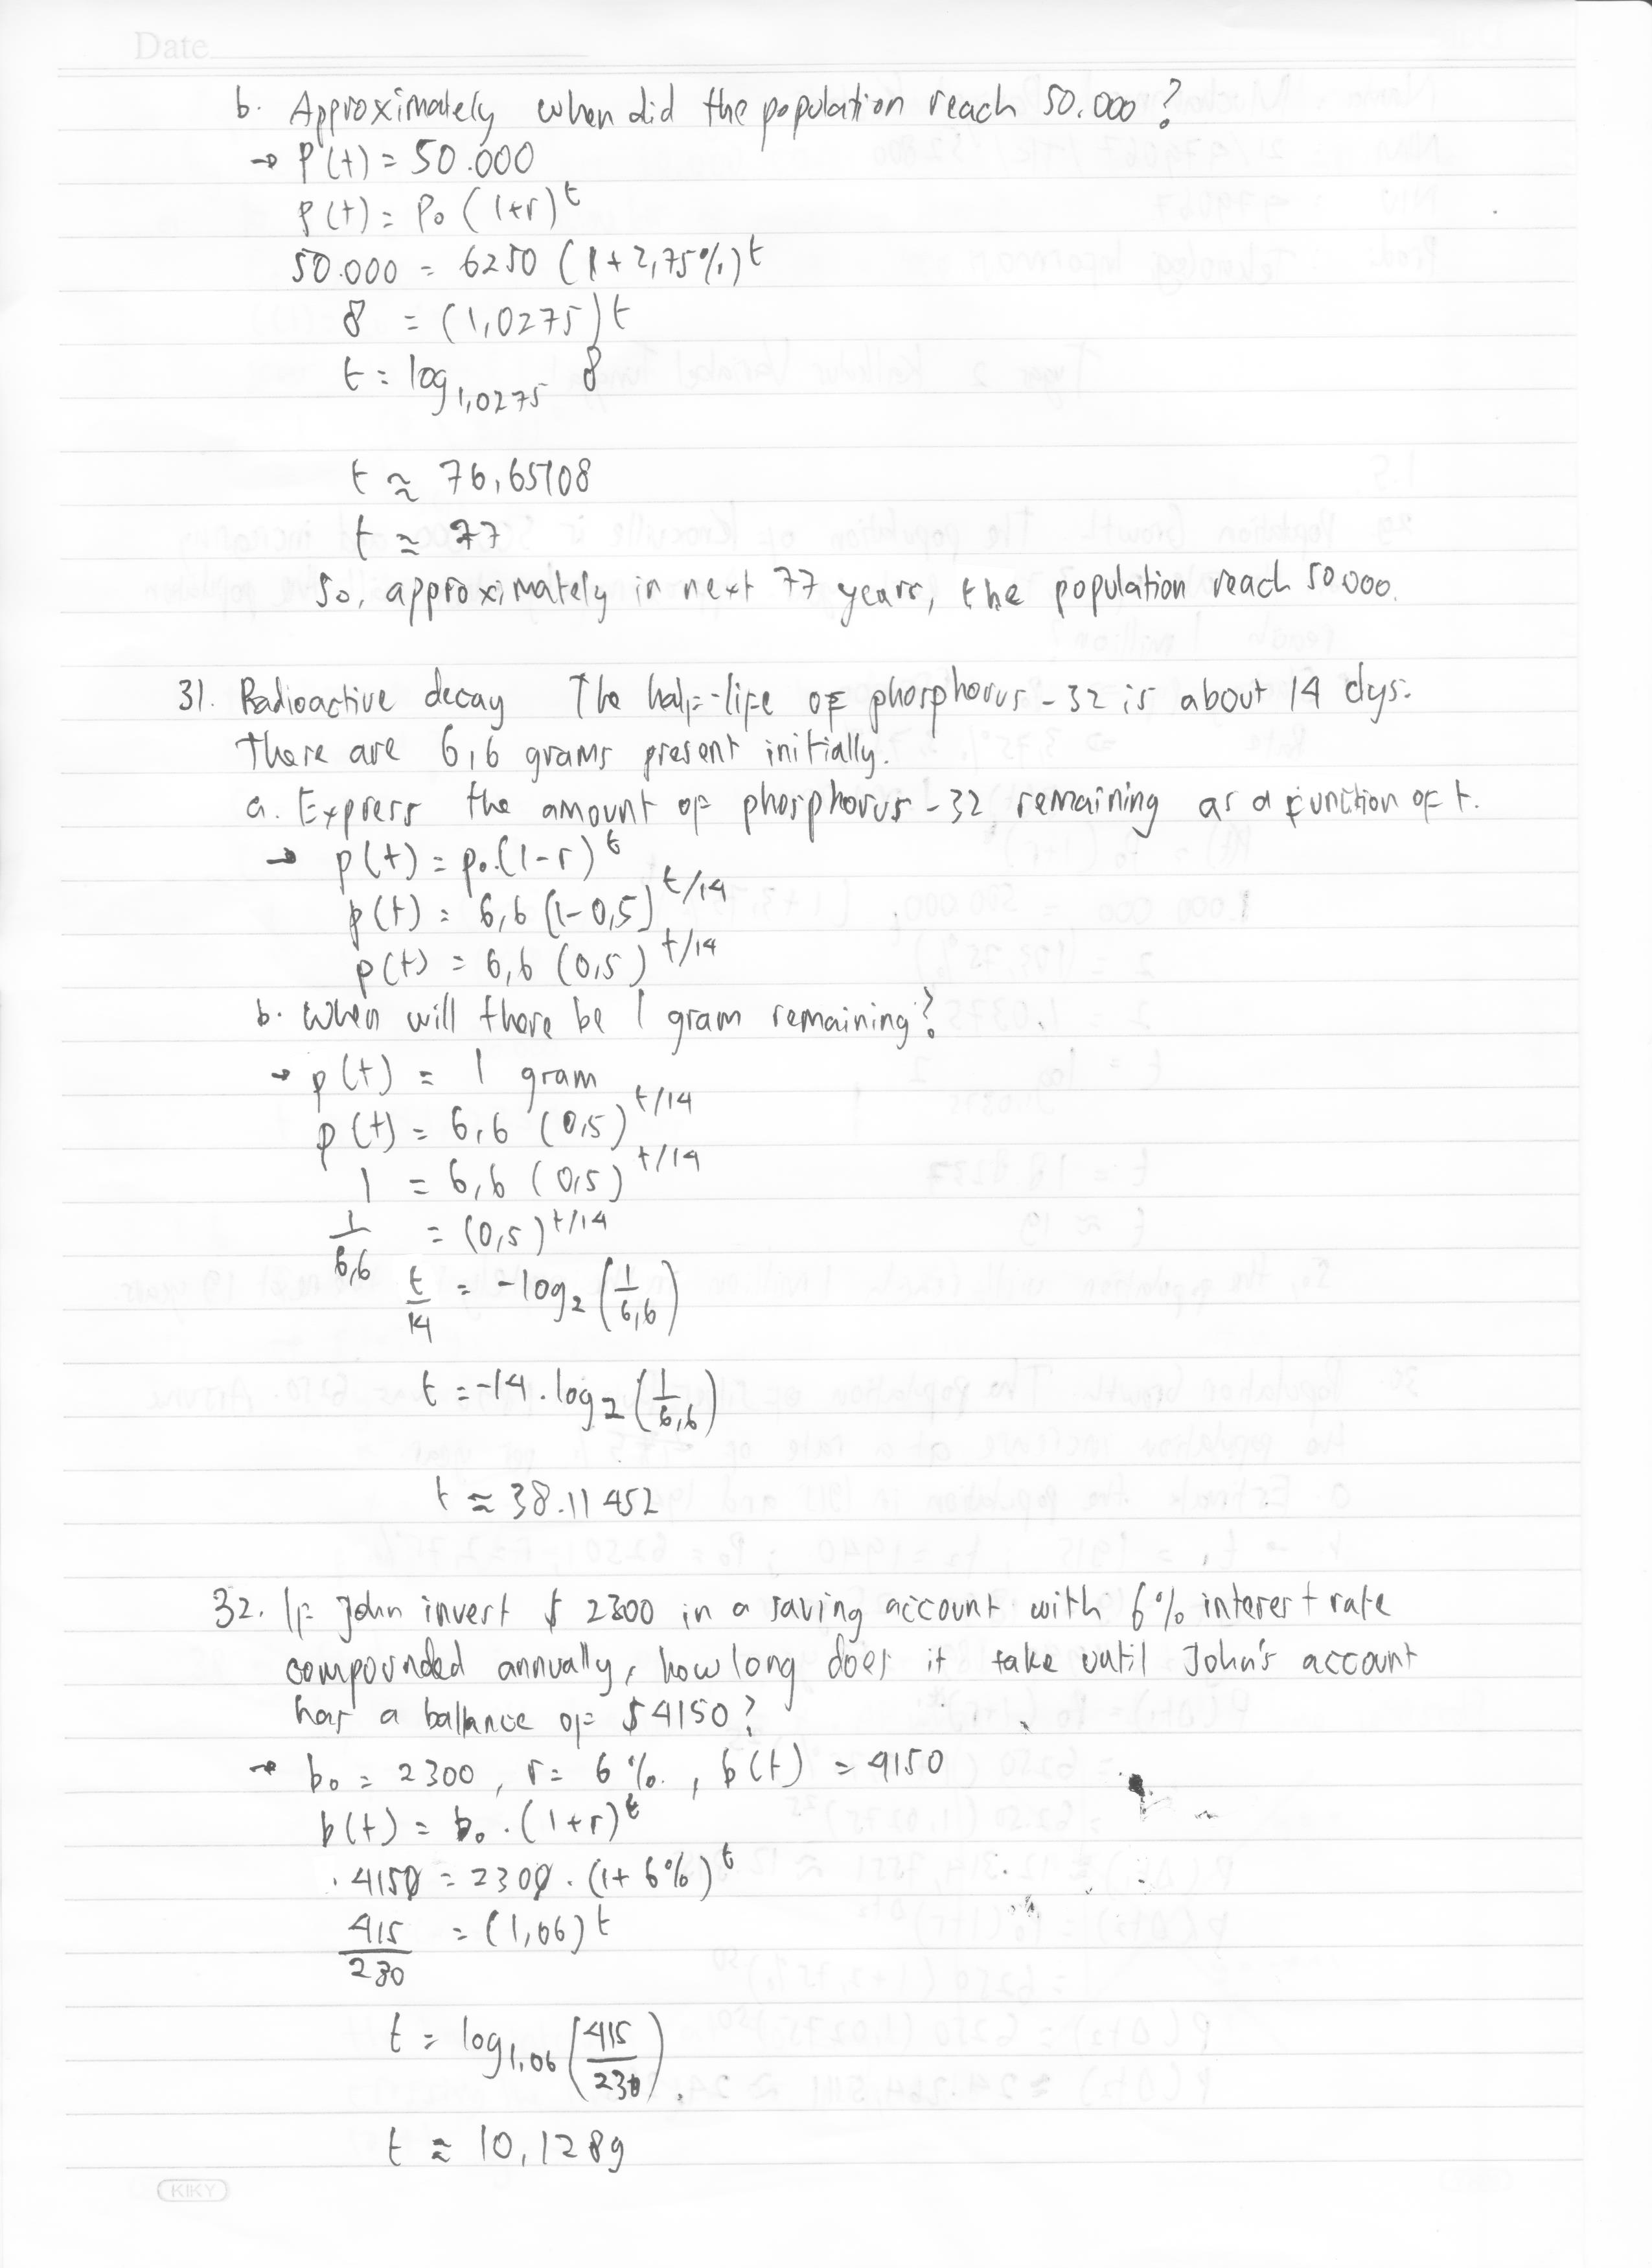 Date
b. Approximately when did the population reach 50.000?
→ P(t) = 50.000
P(t) = P₀ (1+r)^t
50.000 = 6250 (1+2,75%)^t
8 = (1,0275)^t
t = log₁,₀₂₇₅ 8
t ≈ 76,65108
t ≈ 77
So, approximately in next 77 years, the population reach 50000.
31. Radioactive decay The half-life of phosphorus-32 is about 14 dys.
There are 6,6 grams present initially.
a. Express the amount of phosphorus-32 remaining as a function of t.
→ p(t) = p₀.(1-r)^t
p(t) = 6,6 (1-0,5)^t/14
p(t) = 6,6 (0,5)^t/14
b. When will there be 1 gram remaining?
→ p(t) = 1 gram
p(t) = 6,6 (0,5)^t/14
1 = 6,6 (0,5)^t/14
1/6,6 = (0,5)^t/14
t/14 = -log₂ (1/6,6)
t = -14 . log₂ (1/6,6)
t ≈ 38.11452
32. If John invest $ 2300 in a saving account with 6% interest rate
compounded annually, how long does it take until John's account
has a ballance of $4150?
→ b₀ = 2300, r = 6%, b(t) = 4150
b(t) = b₀ . (1+r)^t
4150 = 2300 . (1+6%)^t
415/230 = (1,06)^t
t = log₁,₀₆ (415/230)
t ≈ 10,1289
KIKY